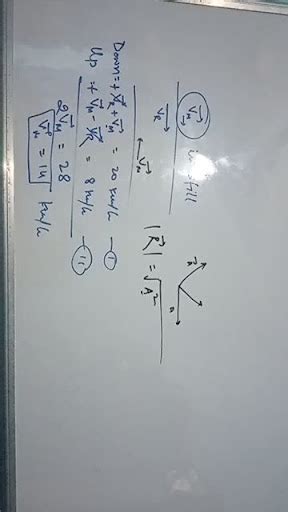 V⃗M in still
V⃗R
V⃗M
Down = + V⃗R + V⃗M = 20 km/h — (I)
Up = + V⃗M - V⃗R = 8 km/h — (II)
2V⃗M = 28
V⃗M = 14 km/h
|R⃗| = √A²